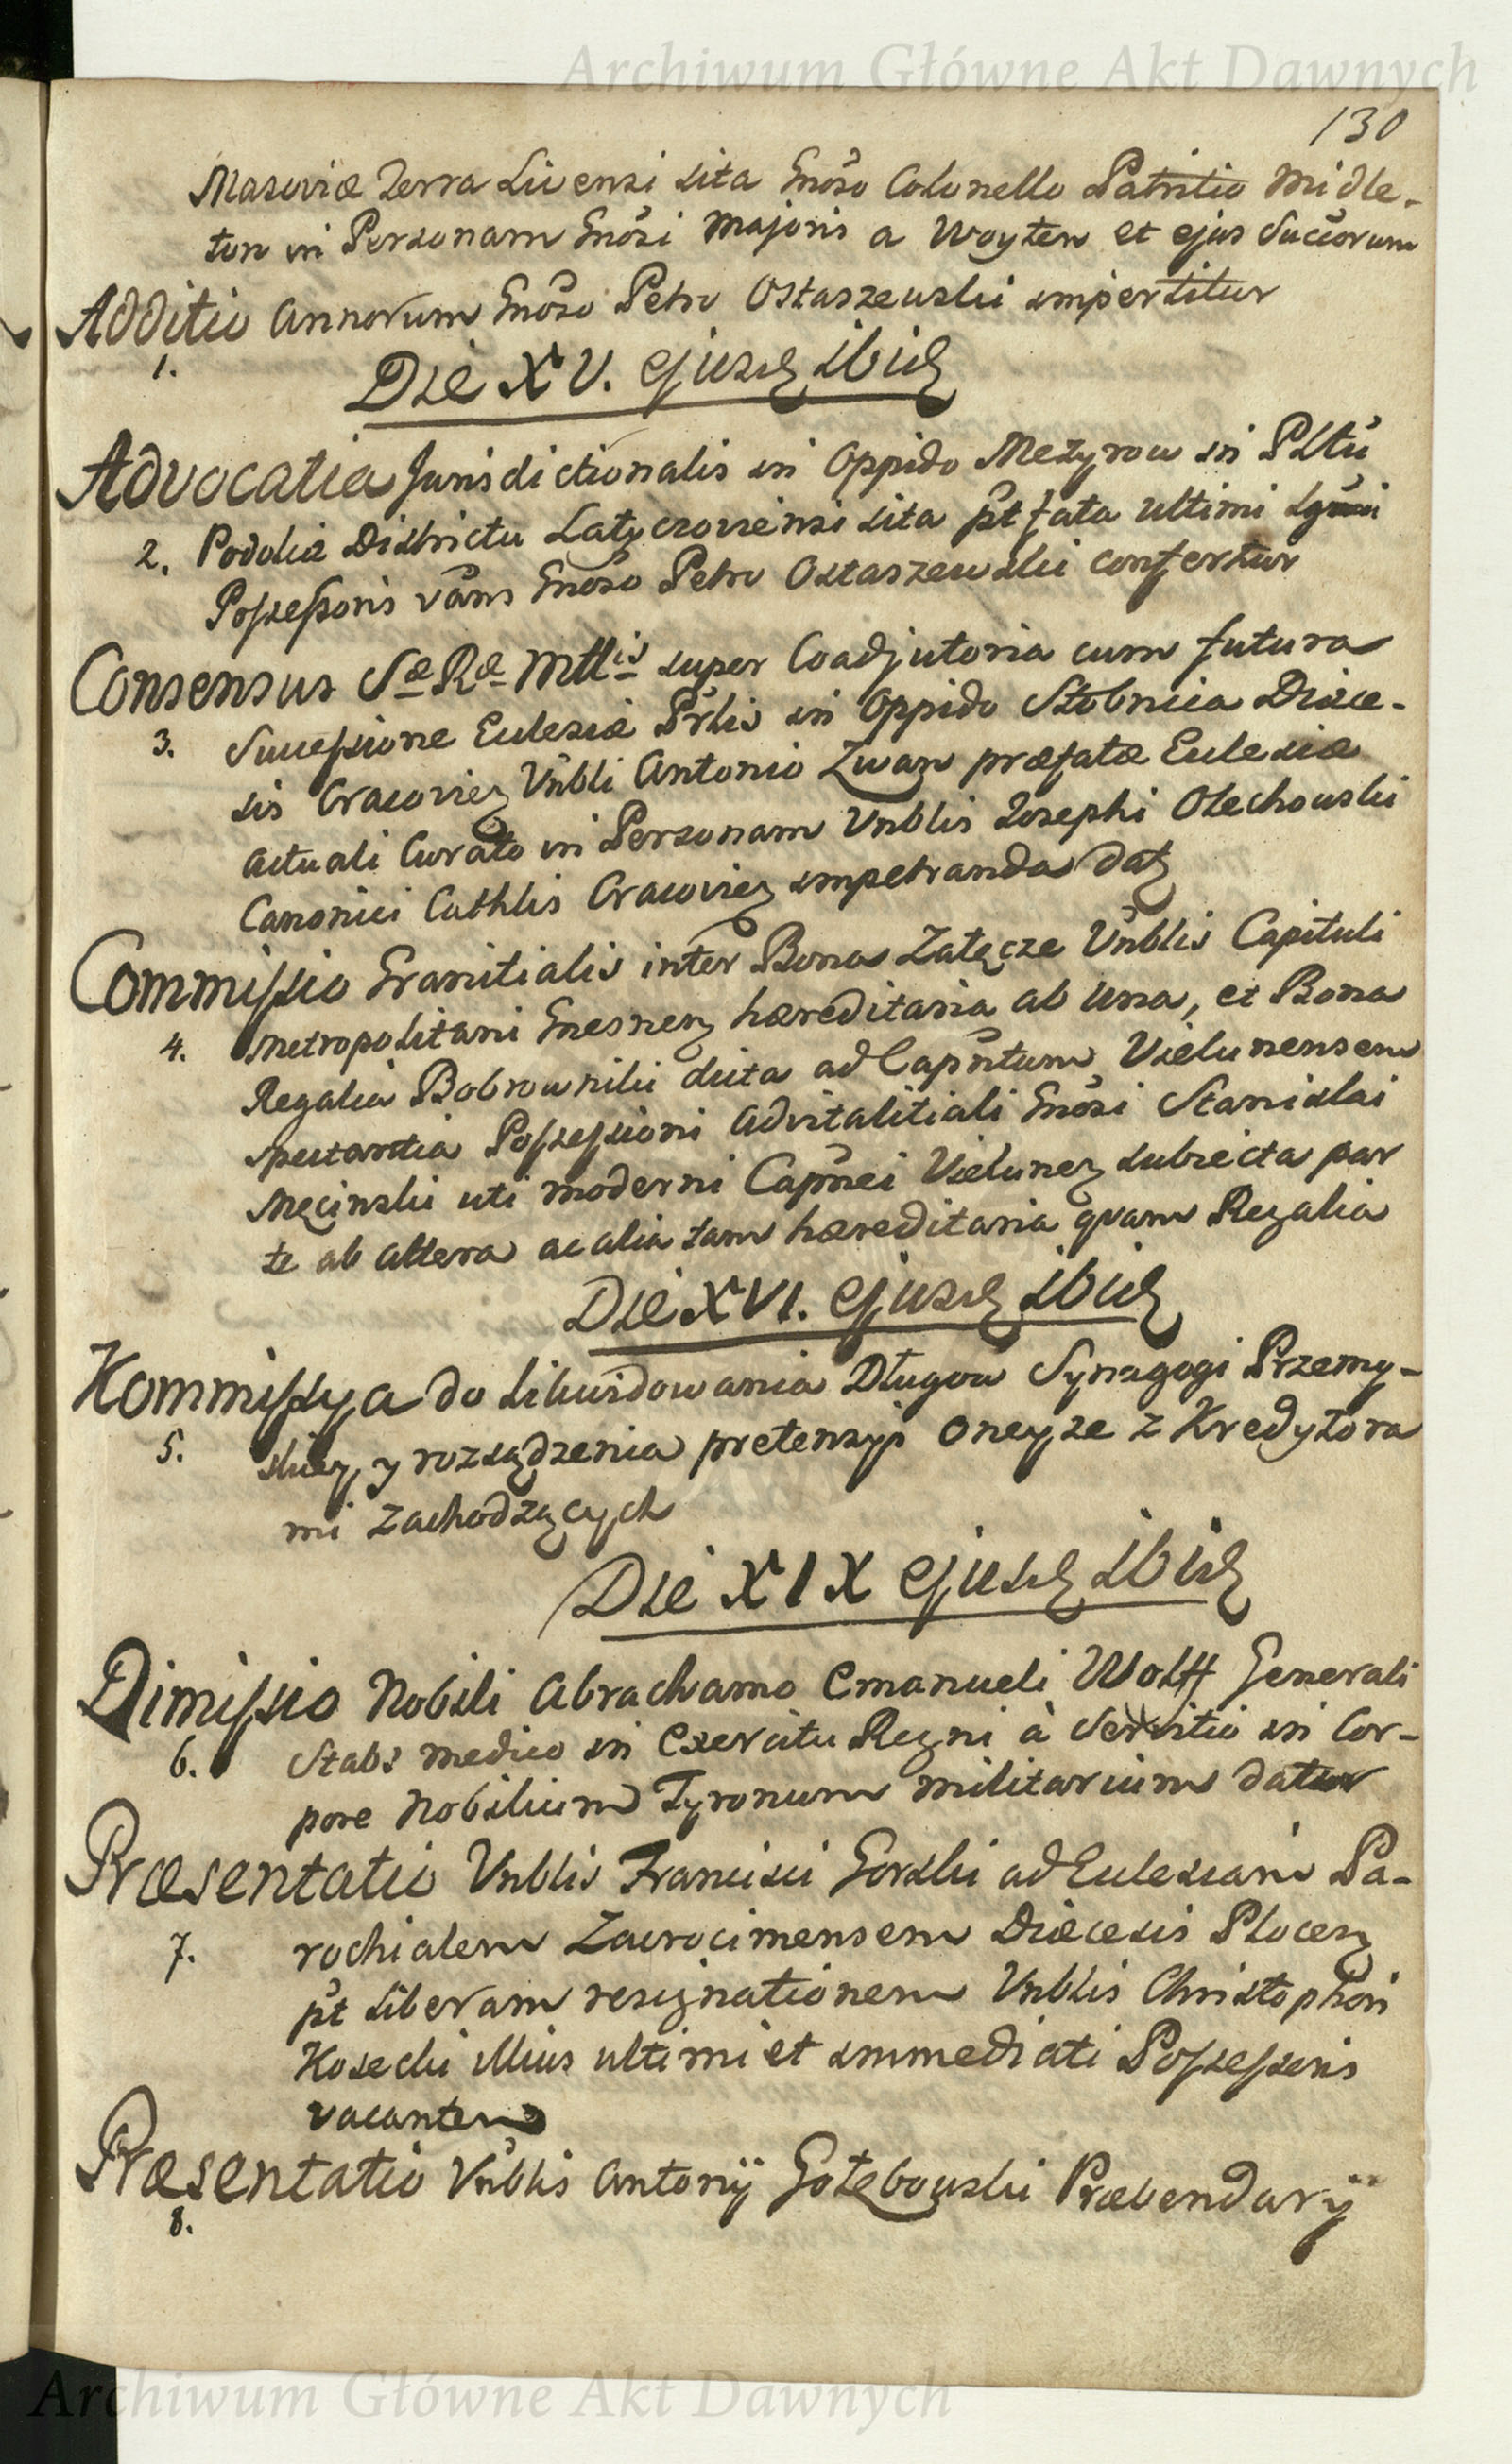 Archiwum Główne Akt Dawnych
130
Masoviæ Terra Livensi sita Gnoso Colonello Patritio Midle-
ton in Personam Gnosi Majoris a Woyten et ejus Succorum
Additio Annorum Gnoso Petro Ostaszewski impertitur
1.
Die XV. ejusdq ibidq
Advocatia Jurisdictionalis in Oppido Mezyrow in Pltu
2. Podoliæ Districtu Latyczoviensi sita pt fata ultimi Lgmi
Possessoris vans Gnoso Petro Ostaszewski confertur
Consensus Sæ Ræ Mttis super Coadjutoria cum futura
3. Successione Eclesiæ Prlis in Oppido Stobnica Diæce-
sis Cracovieq Vnbli Antonio Zwan præfatæ Eclesiæ
actuali Curato in Personam Vnblis Josephi Olechowski
Canonici Cathlis Cracovieq impetranda datq
Commissio Granitialis inter Bona Załęcze Vnblis Capituli
4. Metropolitani Gnesneq hæreditaria ab una, et Bona
Regalia Bobrowniki dicta ad Capntum Vielunensem
spectantia Possessioni Advitalitiali Gnosi Stanislai
Męcinski uti moderni Capnei Vieluneq subiecta par
te ab altera ac alia tam hæreditaria quam Regalia
Die XVI. ejusdq ibidq
Kommissya do likwidowania Długow Synagogi Przemy-
5. skiey, y rozsądzenia pretensyi oneyze z Kredytora
mi zachodzących
Die XIX ejusdq ibidq
Dimissio Nobili Abrachamo Emanueli Wolff Generali
6. Stabs medico in Exercitu Regni à Servitio in Cor-
pore Nobilium Tyronum militarium datur
Præsentatio Vnblis Francisci Gorski ad Eclesiam Pa-
7. rochialem Zacrocimensem Diæcesis Ploceq
pt liberam resignationem Vnblis Christophori
Kosecki illius ultimi et immediati Possessoris
vacantem
Præsentatio Vnblis Antonij Gołębowski Præbendarÿ
8.
Archiwum Główne Akt Dawnych